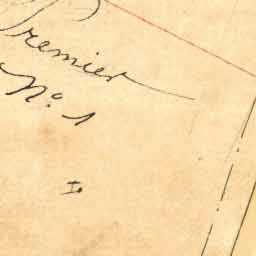 Premier
No. 1